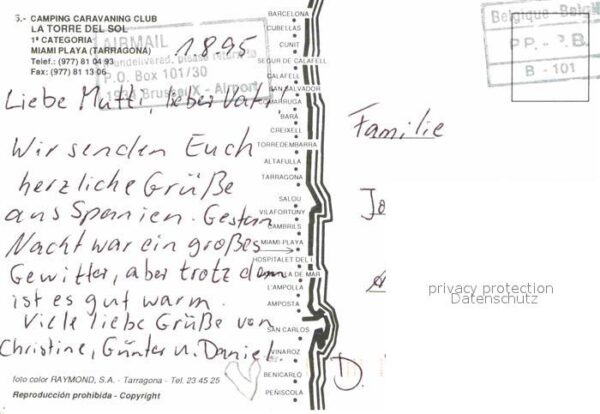 3.- CAMPING CARAVANING CLUB
LA TORRE DEL SOL
1ª CATEGORIA
MIAMI PLAYA (TARRAGONA)
Telef.: (977) 81 04 93
Fax: (977) 81 13 06
AIRMAIL
undelivered, please return to
P.O. Box 101/30
1934 Brussel X - Airport
1.8.95
Liebe Mutti, lieber Vati!
Wir senden Euch
herzliche Grüße
aus Spanien. Gestern
Nacht war ein großes
Gewitter, aber trotzdem
ist es gut warm.
Viele liebe Grüße von
Christine, Günter u. Daniel.
foto color RAYMOND, S.A. - Tarragona - Tel. 23 45 25
Reproducción prohibida - Copyright
BARCELONA
CUBELLAS
CUNIT
SEGUR DE CALAFELL
CALAFELL
SAN SALVADOR
COMARRUGA
BARÁ
CREIXELL
TORREDEMBARRA
ALTAFULLA
TARRAGONA
SALOU
VILAFORTUNY
CAMBRILS
MIAMI PLAYA
HOSPITALET DEL I
LA DE MAR
L'AMPOLLA
AMPOSTA
SAN CARLOS
VINAROZ
BENICARLO
PEÑISCOLA
Belgique - België
P.P. - P.B.
B - 101
Familie
Jo
D.
privacy protection
Datenschutz